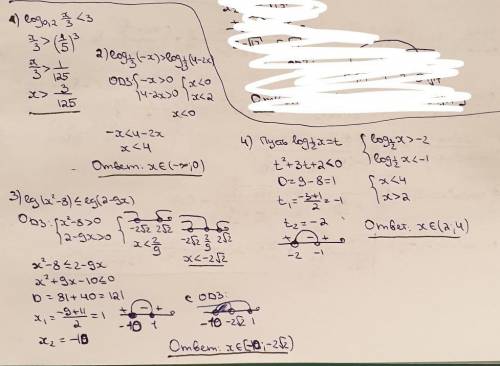 1) log₀,₂ x/3 < 3
x/3 > (1/5)³
x/3 > 1/125
x > 3/125
2) log⅓(-x) > log⅓(4-2x)
ОДЗ { -x>0 4-2x>0 { x<0 x<2
x<0
-x<4-2x
x<4
Ответ: x∈(-∞;0)
3) lg(x²-8) ≤ lg(2-9x)
ОДЗ: { x²-8>0 2-9x>0 { -2√2 2√2 x<2/9
-2√2 2/9 2√2
x<-2√2
x²-8 ≤ 2-9x
x²+9x-10≤0
D = 81+40 = 121
x₁ = (-9+11)/2 = 1
x₂ = -10
+ - +
-10 1
с ОДЗ:
-10 -2√2 1
Ответ: x∈[-10; -2√2)
4) Пусть log½x=t
t²+3t+2<0
D=9-8=1
t₁ = (-3+1)/2 = -1
t₂ = -2
+ - +
-2 -1
{ log½x>-2 log½x<-1
{ x<4 x>2
Ответ: x∈(2;4)